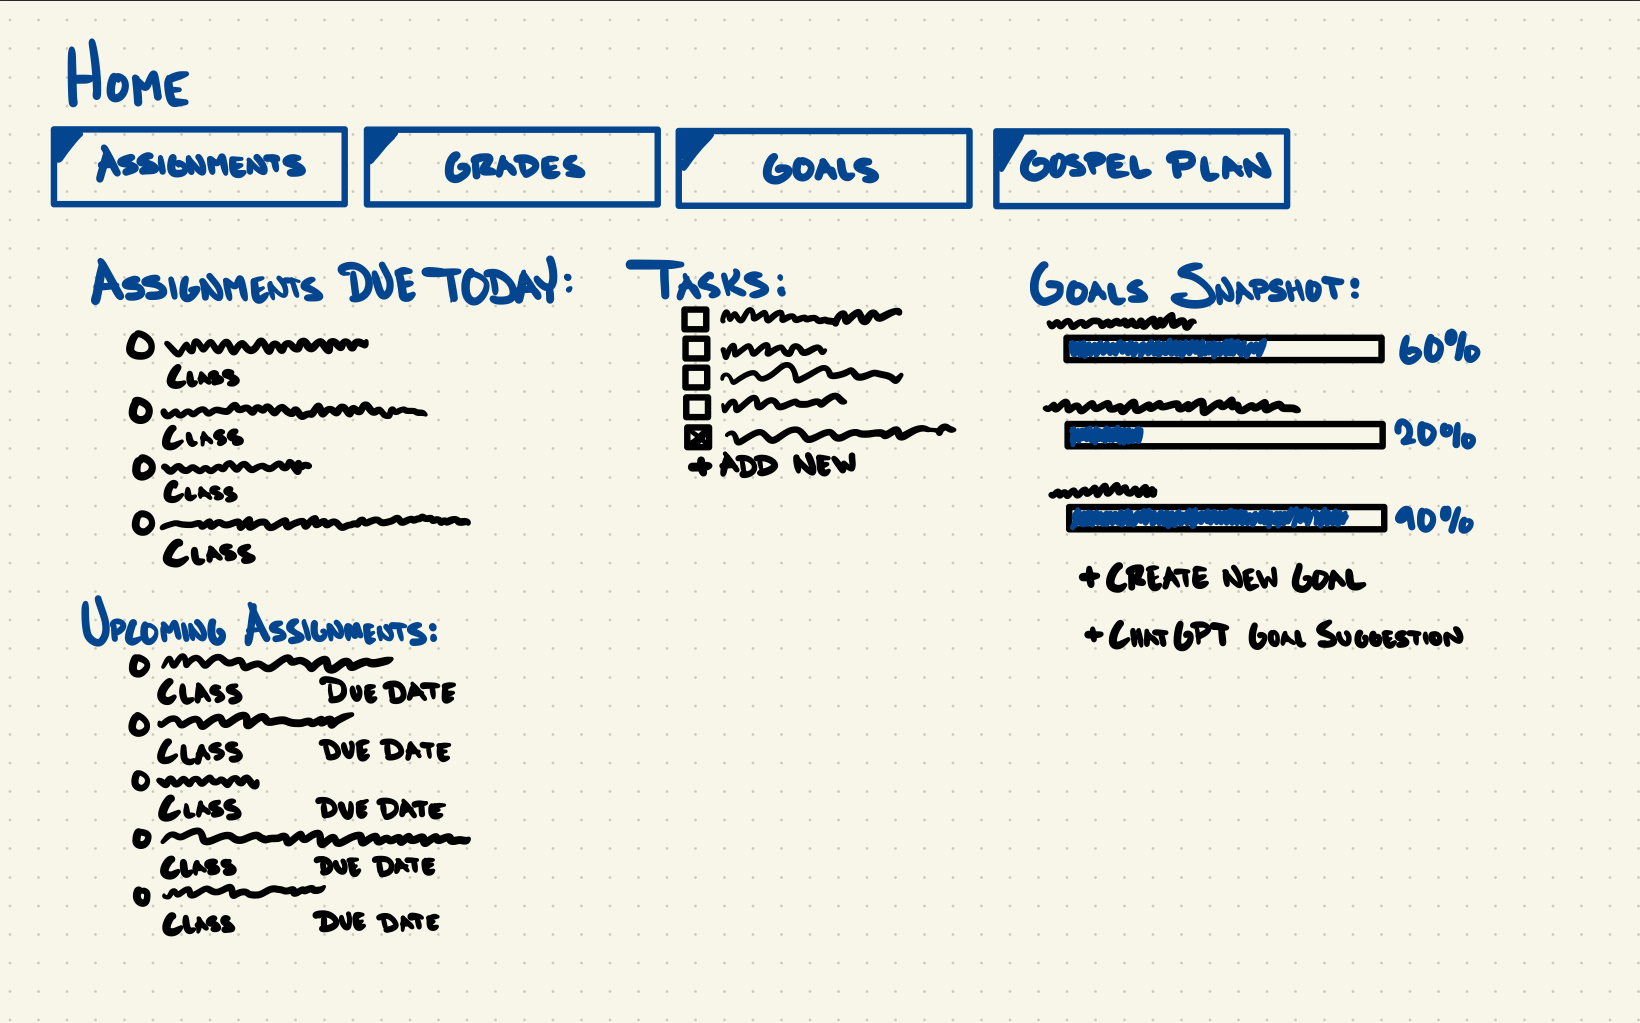 HOME
ASSIGNMENTS
GRADES
GOALS
GOSPEL PLAN
ASSIGNMENTS DUE TODAY:
CLASS
CLASS
CLASS
CLASS
UPCOMING ASSIGNMENTS:
CLASS DUE DATE
CLASS DUE DATE
CLASS DUE DATE
CLASS DUE DATE
CLASS DUE DATE
TASKS:
+ ADD NEW
GOALS SNAPSHOT:
60%
20%
90%
+ CREATE NEW GOAL
+ CHATGPT GOAL SUGGESTION